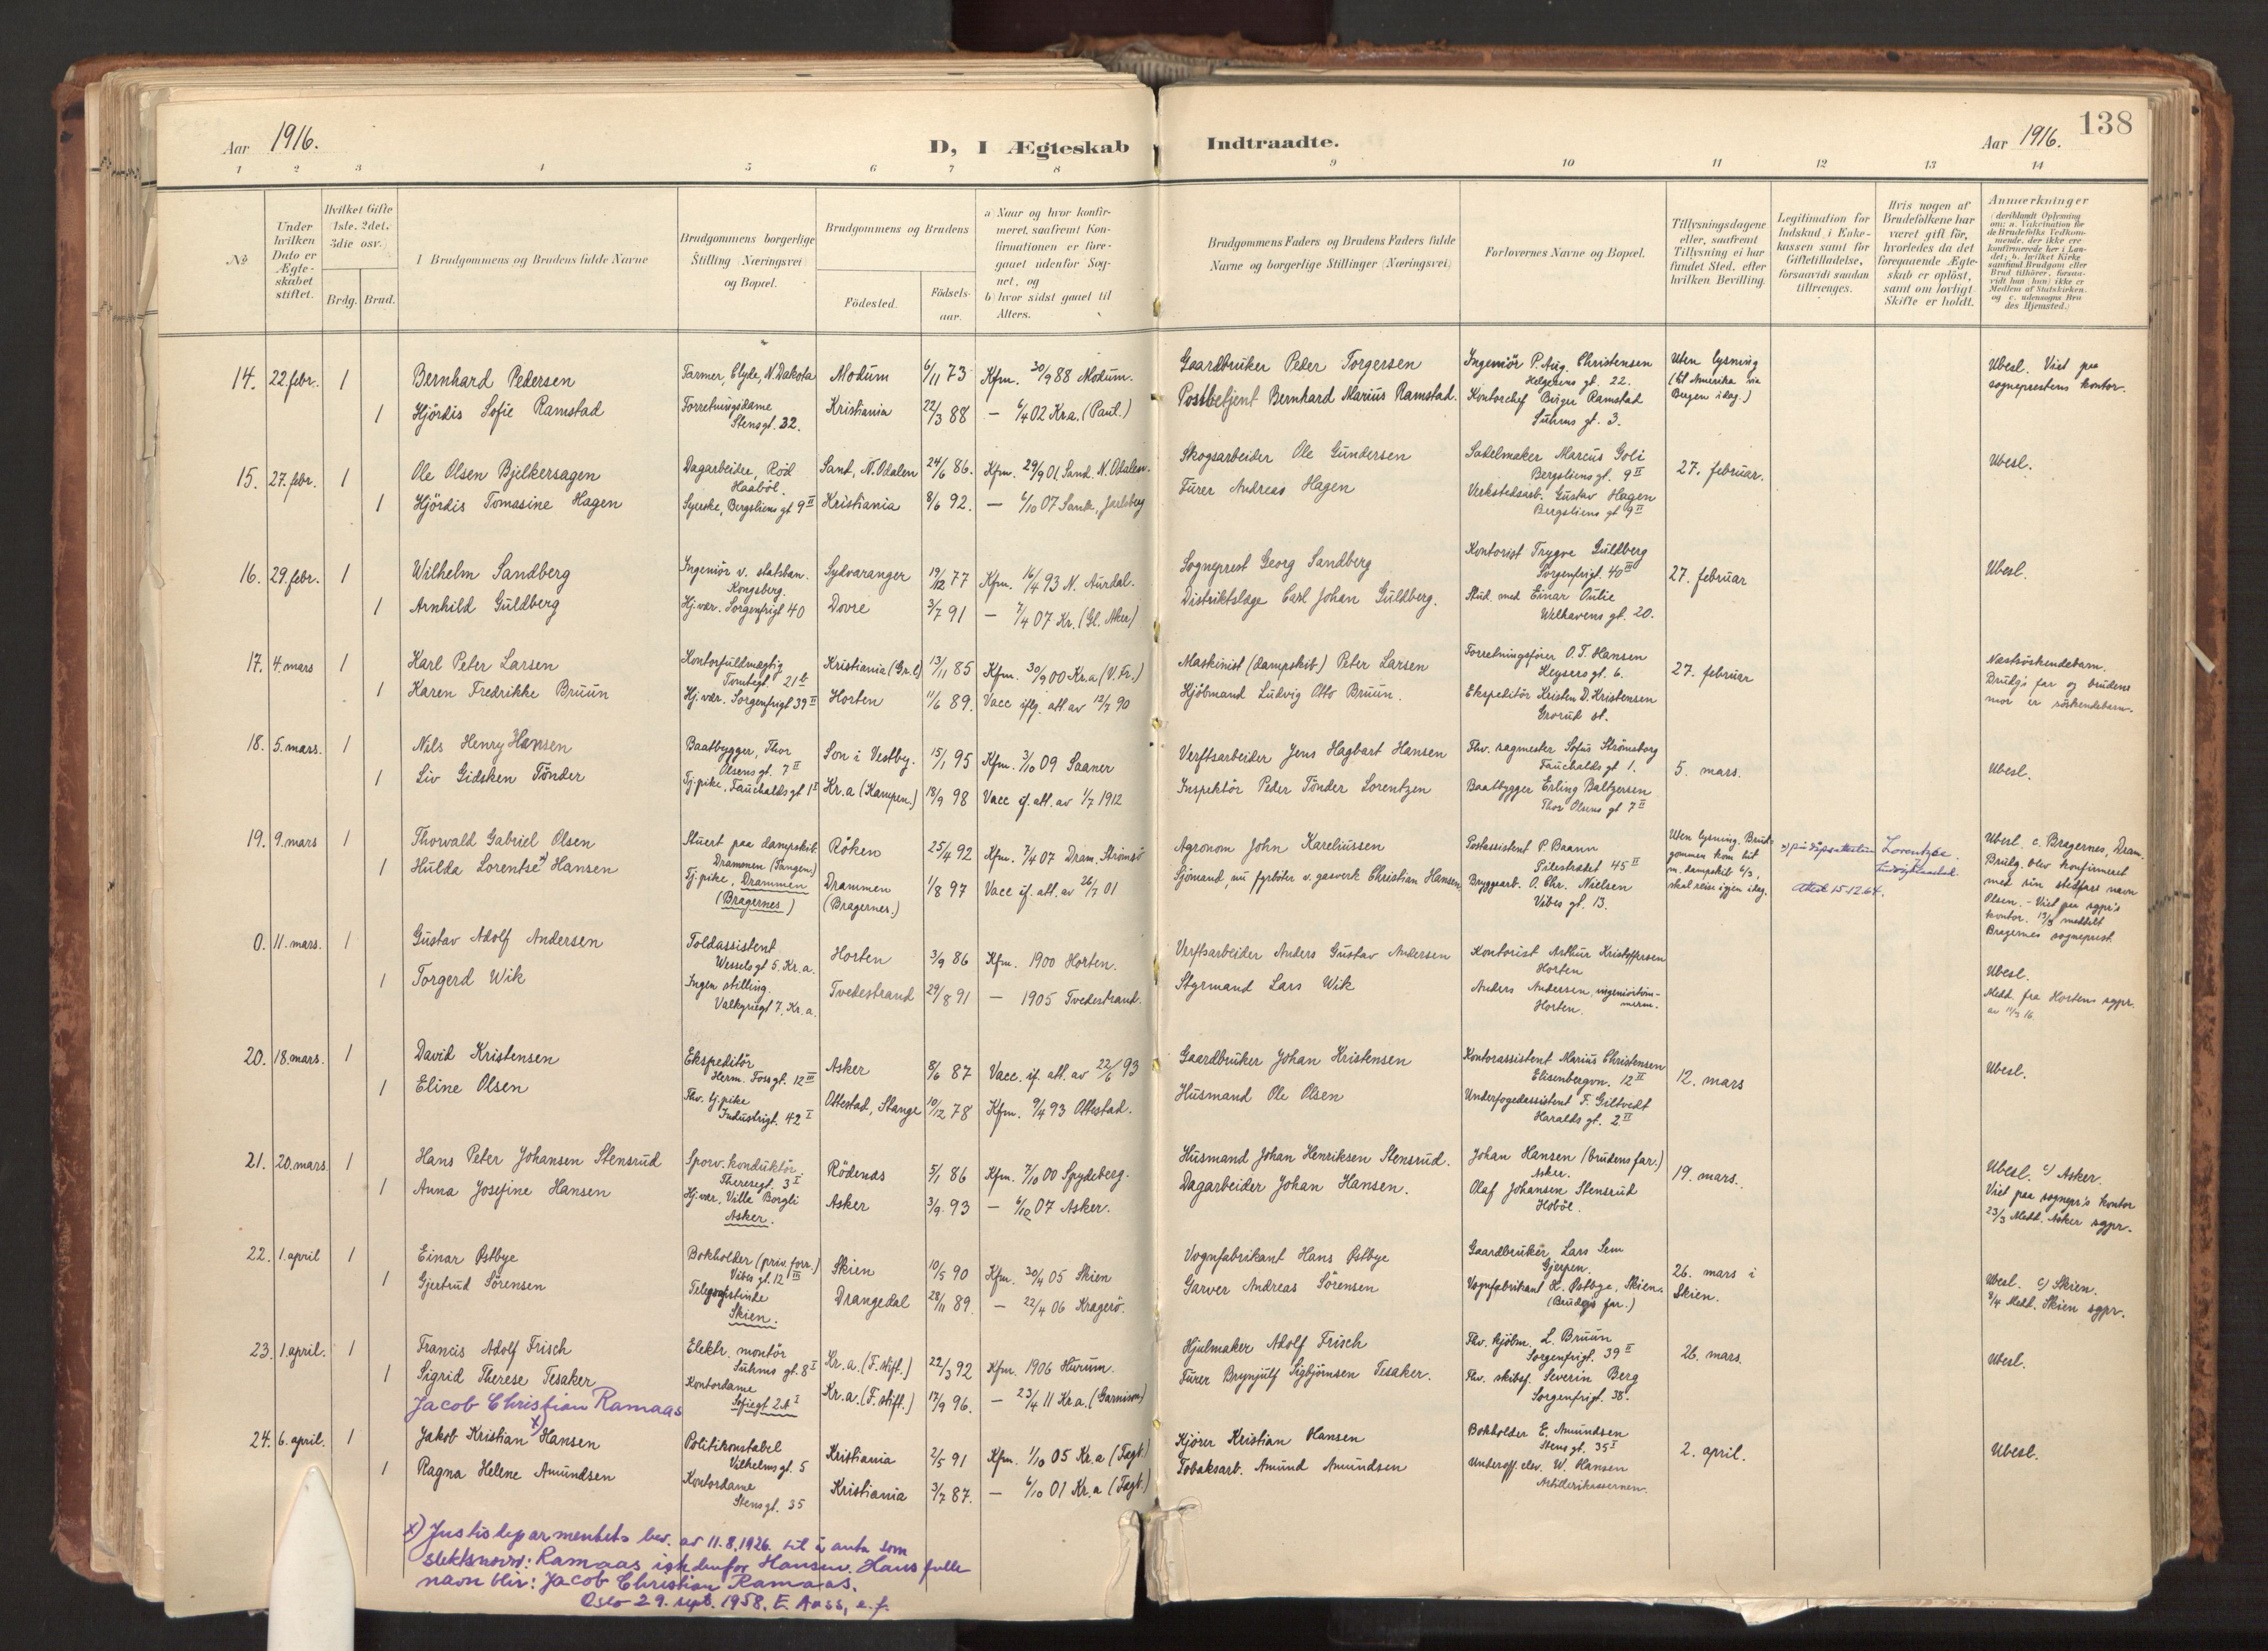 Aar 1916.
D, I Ægteskab Indtraadte.
Aar 1916.
138
1 2 3 4 5 6 7 8 9 10 11 12 13 14
№
Under hvilken Dato er Ægteskabet stiftet.
Hvilket Gifte (1ste, 2det, 3die osv.)
Brdg. Brud.
I Brudgommens og Brudens fulde Navne
Brudgommens borgerlige Stilling (Næringsvei) og Bopæl.
Brudgommens og Brudens
Födested.
Födselsaar.
a) Naar og hvor konfirmeret, saafremt Konfirmationen er foregaaet udenfor Sognet, og
b) hvor sidst gaaet til Alters.
Brudgommens Faders og Brudens Faders fulde Navne og borgerlige Stillinger (Næringsvei)
Forlovernes Navne og Bopæl.
Tillysningsdagene eller, saafremt Tillysning ei har fundet Sted, efter hvilken Bevilling.
Legitimation for Indskud i Enkekassen samt for Giftetilladelse, forsaavidt saadan tiltrænges.
Hvis nogen af Brudefolkene har været gift för, hvorledes da det foregaaende Ægteskab er oplöst, samt om lovligt Skifte er holdt.
Anmærkninger
(deriblandt Oplysning om: a. Vakcination for de Brudefolks Vedkommende, der ikke ere konfirmerede her i Landet; b. hvilket Kirkesamfund Brudgom eller Brud tilhörer, forsaavidt han (hun) ikke er Medlem af Statskirken, og c. udensogns Brudes Hjemsted.)
14. 22.febr. 1 Bernhard Pedersen Farmer, Clyde, N.Dakota Modum 6/11 73 Kfm. 30/9 88 Modum. Gaardbruker Peder Torgersen Ingeniör P. Aug. Christensen Helgesens gt. 22. Uten lysning (til Amerika via Bergen idag.) Ubesl. Viet paa sogneprestens kontor.
1 Hjördis Sofie Ramstad Forretningsdame Stensgt. 32. Kristiania 22/3 88 — 6/4 02 Kr.a. (Paul.) Postbetjent Bernhard Marius Ramstad. Kontorchef Birger Ramstad Suhms gt. 3.
15. 27.febr. 1 Ole Olsen Bjelkersagen Dagarbeider, Röd Haaböl. Sand, N.Odalen 24/6 86. Kfm. 29/9 01 Sand. N. Odalen. Skogsarbeider Ole Gundersen Sadelmaker Marcus Goli Bergsliens gt. 9 II 27. februar. Ubesl.
1 Hjördis Tomasine Hagen Syerske, Bergsliens gt 9 II Kristiania 8/6 92. — 6/10 07 Sande, Jarlsberg Furer Andreas Hagen Verkstedsarb. Gustav Hagen Bergsliens gt 9 II
16. 29.febr. 1 Wilhelm Sandberg Ingeniör v. statsban. Kongsberg. Sydvaranger 19/12 77 Kfm. 16/4 93 N. Aurdal. Sogneprest Georg Sandberg Kontorist Trygve Guldberg Sorgenfrigt. 40 III 27. februar Ubesl.
1 Arnhild Guldberg Hj.vær. Sorgenfrigt 40 Dovre 3/7 91 — 7/4 07 Kr. (Gl. Aker) Distriktslæge Carl Johan Guldberg. Stud. med Einar Oulie Welhavens gt. 20.
17. 4.mars 1 Karl Peter Larsen Kontorfuldmægtig Tomtegt. 21b Kristiania (Gr.l.) 13/11 85 Kfm. 30/9 00 Kr.a (V.Fr.) Maskinist (dampskib.) Peter Larsen Forretningsförer O. T. Hansen Keysers gt. 6. 27. februar Næstsöskendebarn. Brudg's far og brudens mor er söskendebarn.
1 Karen Fredrikke Bruun Hj.vær. Sorgenfrigt 39 II Horten 11/6 89. Vacc iflg. att. av 12/7 90 Kjöbmand Ludvig Otto Bruun. Ekspeditör Kristen D. Kristensen Grorud st.
18. 5.mars. 1 Nils Henry Hansen Baatbygger, Thor Olsens gt. 7 II Son i Vestby. 15/1 95 Kfm. 3/10 09 Saaner Verftsarbeider Jens Hagbart Hansen Fhv. sagmester Sofus Strömsborg Fauchalds gt 1. 5. mars. Ubesl.
1 Liv Gidsken Tönder Tj.pike, Fauchalds gt 1 I Kr.a (Kampen.) 18/9 98 Vacc if. att. av 1/7 1912 Inspektör Peder Tönder Lorentzen Baatbygger Erling Baltzersen Thor Olsens gt 7 II
19. 9.mars 1 Thorvald Gabriel Olsen Stuert paa dampskib Drammen (Tangen.) Röken 25/4 92 Kfm. 7/4 07 Dram. Strömsö Agronom John Kareliussen Postassistent P. Baann Pilestrædet 45 II Uten lysning. Brudgommen kom hit m. dampskib 6/3, skal reise igjen idag. Ubesl. c. Bragernes, Dram. Brudg. blev konfirmeret med sin stedfars navn Olsen. - Viet paa sgpr's kontor. 13/3 meddelt Bragernes sogneprest.
1 Hulda Lorentse x) Hansen Tj.pike, Drammen (Bragernes) Drammen (Bragernes.) 1/8 97 Vacc if. att. av 26/7 01 Sjömand, nu fyrböter v. gasverk Christian Hansen Bryggearb. O. Chr. Nielsen Vibes gt. 13.
x) på dåpsattesten Lorentze.
Attest 15.12.64.
0. 11.mars. 1 Gustav Adolf Andersen Toldassistent Wessels gt 5. Kr.a. Horten 3/9 86 Kfm. 1900 Horten. Verftsarbeider Anders Gustav Andersen Kontorist Arthur Kristoffersen Horten Ubesl. Medd. fra Hortens sgpr. av 11/3 16.
1 Torgerd Wik Ingen stilling. Valkyriegt 7, Kr.a. Tvedestrand 29/8 91 — 1905 Tvedestrand. Styrmand Lars Wik Anders Andersen, Horten.
20. 18.mars. 1 David Kristensen Ekspeditör Herm. Fossgt. 12 III Asker 8/6 87 Vacc. if. att. av 22/6 93 Gaardbruker Johan Kristensen Kontorassistent Marius Christensen Elisenbergvn. 12 II 12. mars Ubesl.
1 Eline Olsen Fhv. tj.pike Industrigt. 42 I Ottestad, Stange 10/12 78 Kfm. 9/4 93 Ottestad. Husmand Ole Olsen Underfogedassistent F. Giltvedt Haralds gt. 2 II
21. 20.mars 1 Hans Peter Johansen Stensrud Sporv. konduktör. Theresegt. 3 I Rödenæs 5/1 86 Kfm. 7/10 00 Spydeberg. Husmand Johan Henriksen Stensrud. Johan Hansen (brudens far.) Asker. 19. mars. Ubesl. c) Asker. Viet paa sognepr's kontor 23/3 Medd. Asker sgpr.
1 Anna Josefine Hansen Hj.vær. Villa Borgli Asker. Asker 3/9 93 — 6/10 07 Asker. Dagarbeider Johan Hansen. Olaf Johansen Stensrud Höböl.
22. 1.april 1 Einar Østbye Bokholder (priv. forr.) Vibes gt. 12 III Skien 10/5 90 Kfm. 30/4 05 Skien Vognfabrikant Hans Østbye Gaardbruker Lars Sem Gjerpen. 26. mars i Skien. Ubesl. c) Skien. 8/4 Medd. Skien sgpr.
1 Gjertrud Sörensen Telegrafistinde Skien. Drangedal 28/11 89. — 22/4 06 Kragerö. Garver Andreas Sörensen Vognfabrikant H. Østbye, Skien. (Brudg's far.)
23. 1.april. 1 Francis Adolf Frisch Elektr. montör Suhms gt. 8 I Kr.a. (F.stift.) 22/3 92 Kfm. 1906 Hurum. Hjulmaker Adolf Frisch Fhv. kjöbm. L. Bruun Sorgenfrigt. 39 II 26. mars. Ubesl.
1 Sigrid Therese Tesaker Kontordame Sofiegt 24 I Kr.a. (F.stift.) 17/9 96. — 23/4 11 Kr.a. (Garnison) Furer Brynjulf Sigbjörnsen Tesaker. Fhv. skibsf. Severin Berg Sorgenfrigt. 38.
Jacob Christian Ramaas
24. 6.april. 1 Jakob Kristian x) Hansen Politikonstabel Vilhelms gt. 5 Kristiania 2/5 91 Kfm. 1/10 05 Kr.a (Fagb.) Kjörer Kristian Hansen Bokholder E. Amundsen Stensgt. 35 I 2. april. Ubesl.
1 Ragna Helene Amundsen Kontordame Stensgt. 35 Kristiania 3/7 87. — 6/10 01 Kr.a (Fagb.) Tobaksarb. Amund Amundsen Underoff. elev. W. Hansen Artillerikasernen.
x) Justisdeparmentets bev. av 11.8.1926 til å anta som
slektsnavn: Ramaas istedenfor Hansen. Hans fulle
navn blir: Jacob Christian Ramaas.
Oslo 29. sept. 1958. E. Aass, e.f.